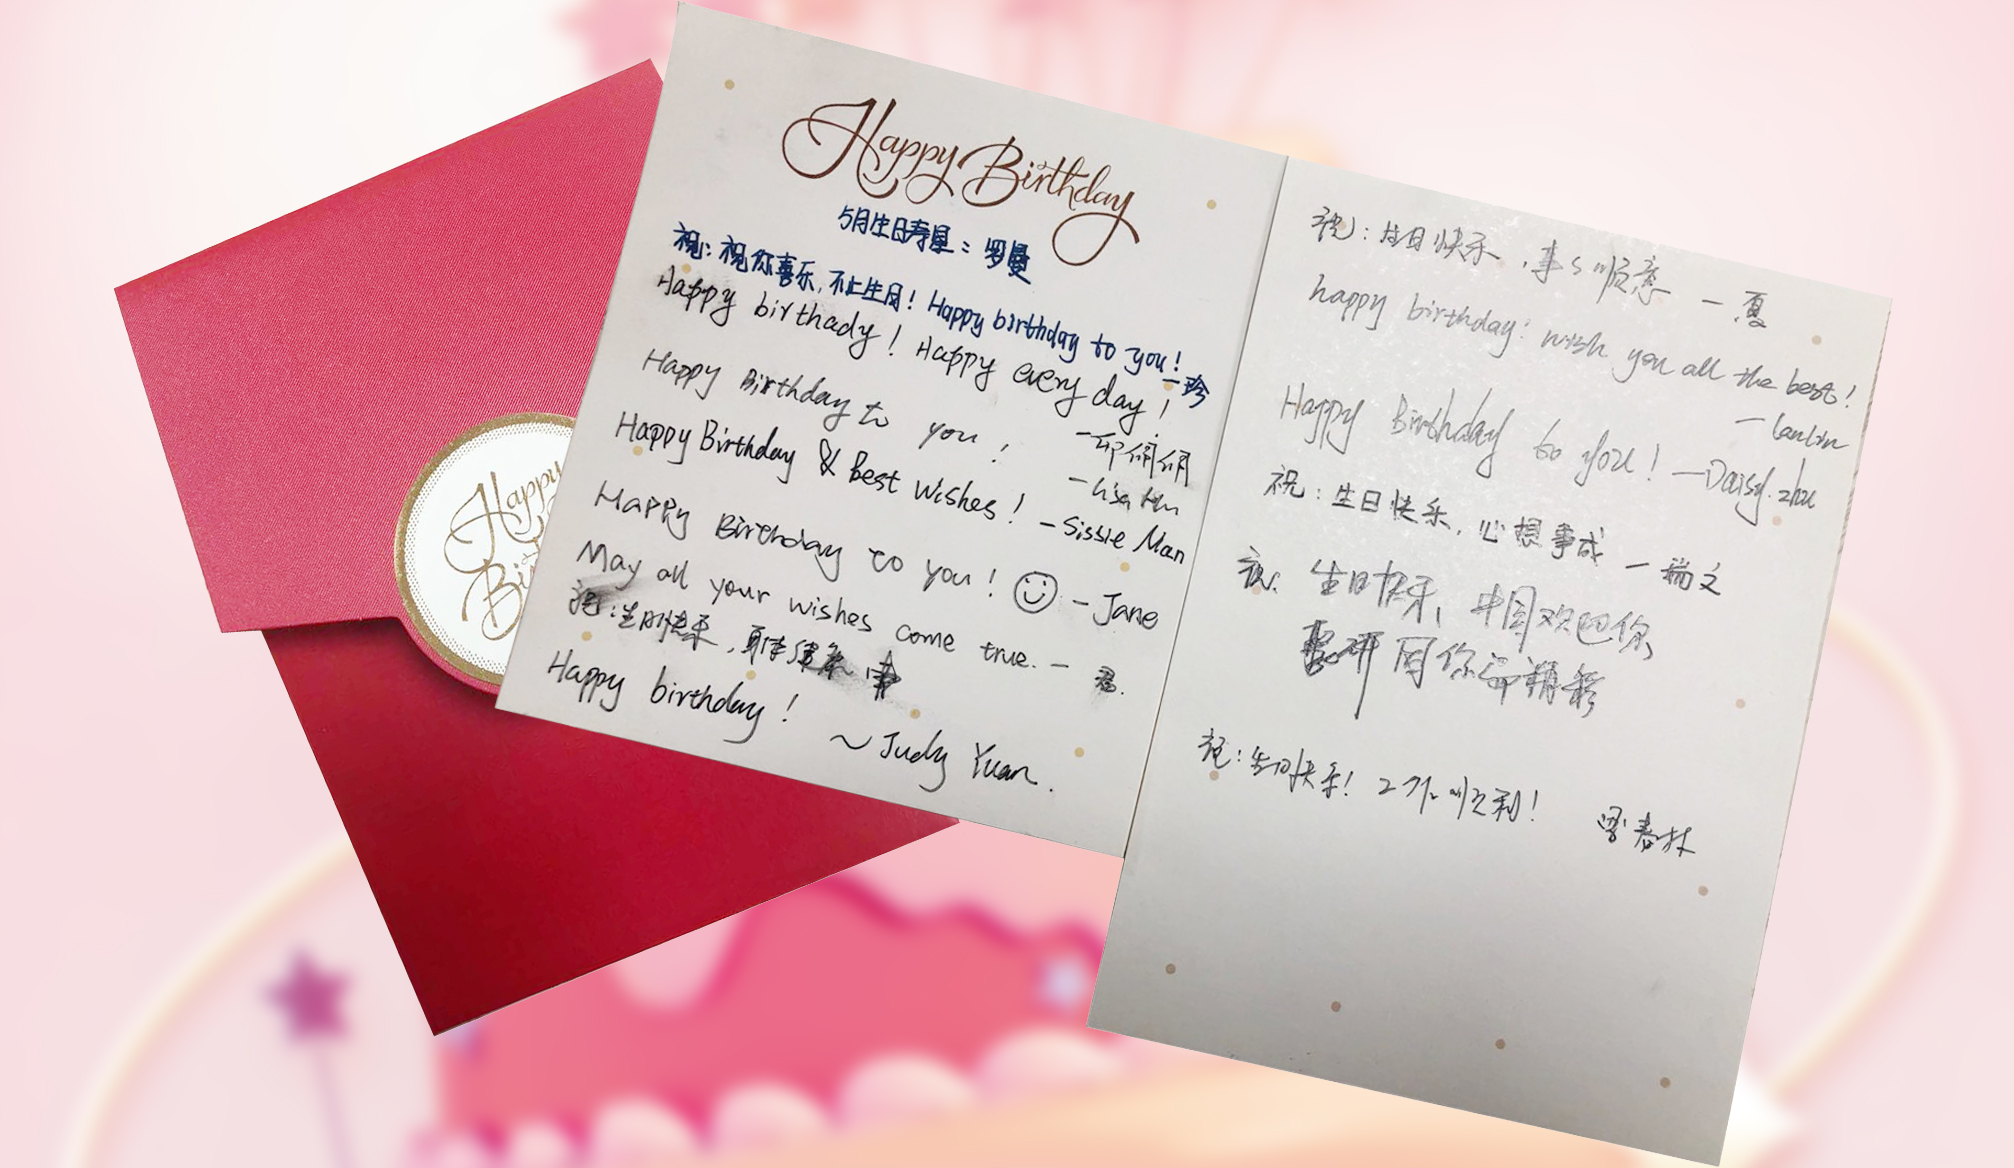 Happy
Bi
Happy Birthday
5月生日寿星：罗曼
祝：祝你喜乐，不止生日！Happy birthday to you！
—珍
Happy birthady！Happy every day！
—邱俩俩
Happy Birthday to you！
—Lisa Hu
Happy Birthday & Best wishes！—Sissie Man
Happy Birthday to you！—Jane
May all your wishes come true.—君.
祝：生日快乐，身体健康
Happy birthday！
～Judy Yuan.
祝：生日快乐，事事顺意 —夏
happy birthday! wish you all the best!
—lanlin
Happy Birthday to you！—Daisy.zhu
祝：生日快乐，心想事成 —瑞文
祝：生日快乐，中国欢迎你
因你而精彩
祝：生日快乐！工作顺利！
春林